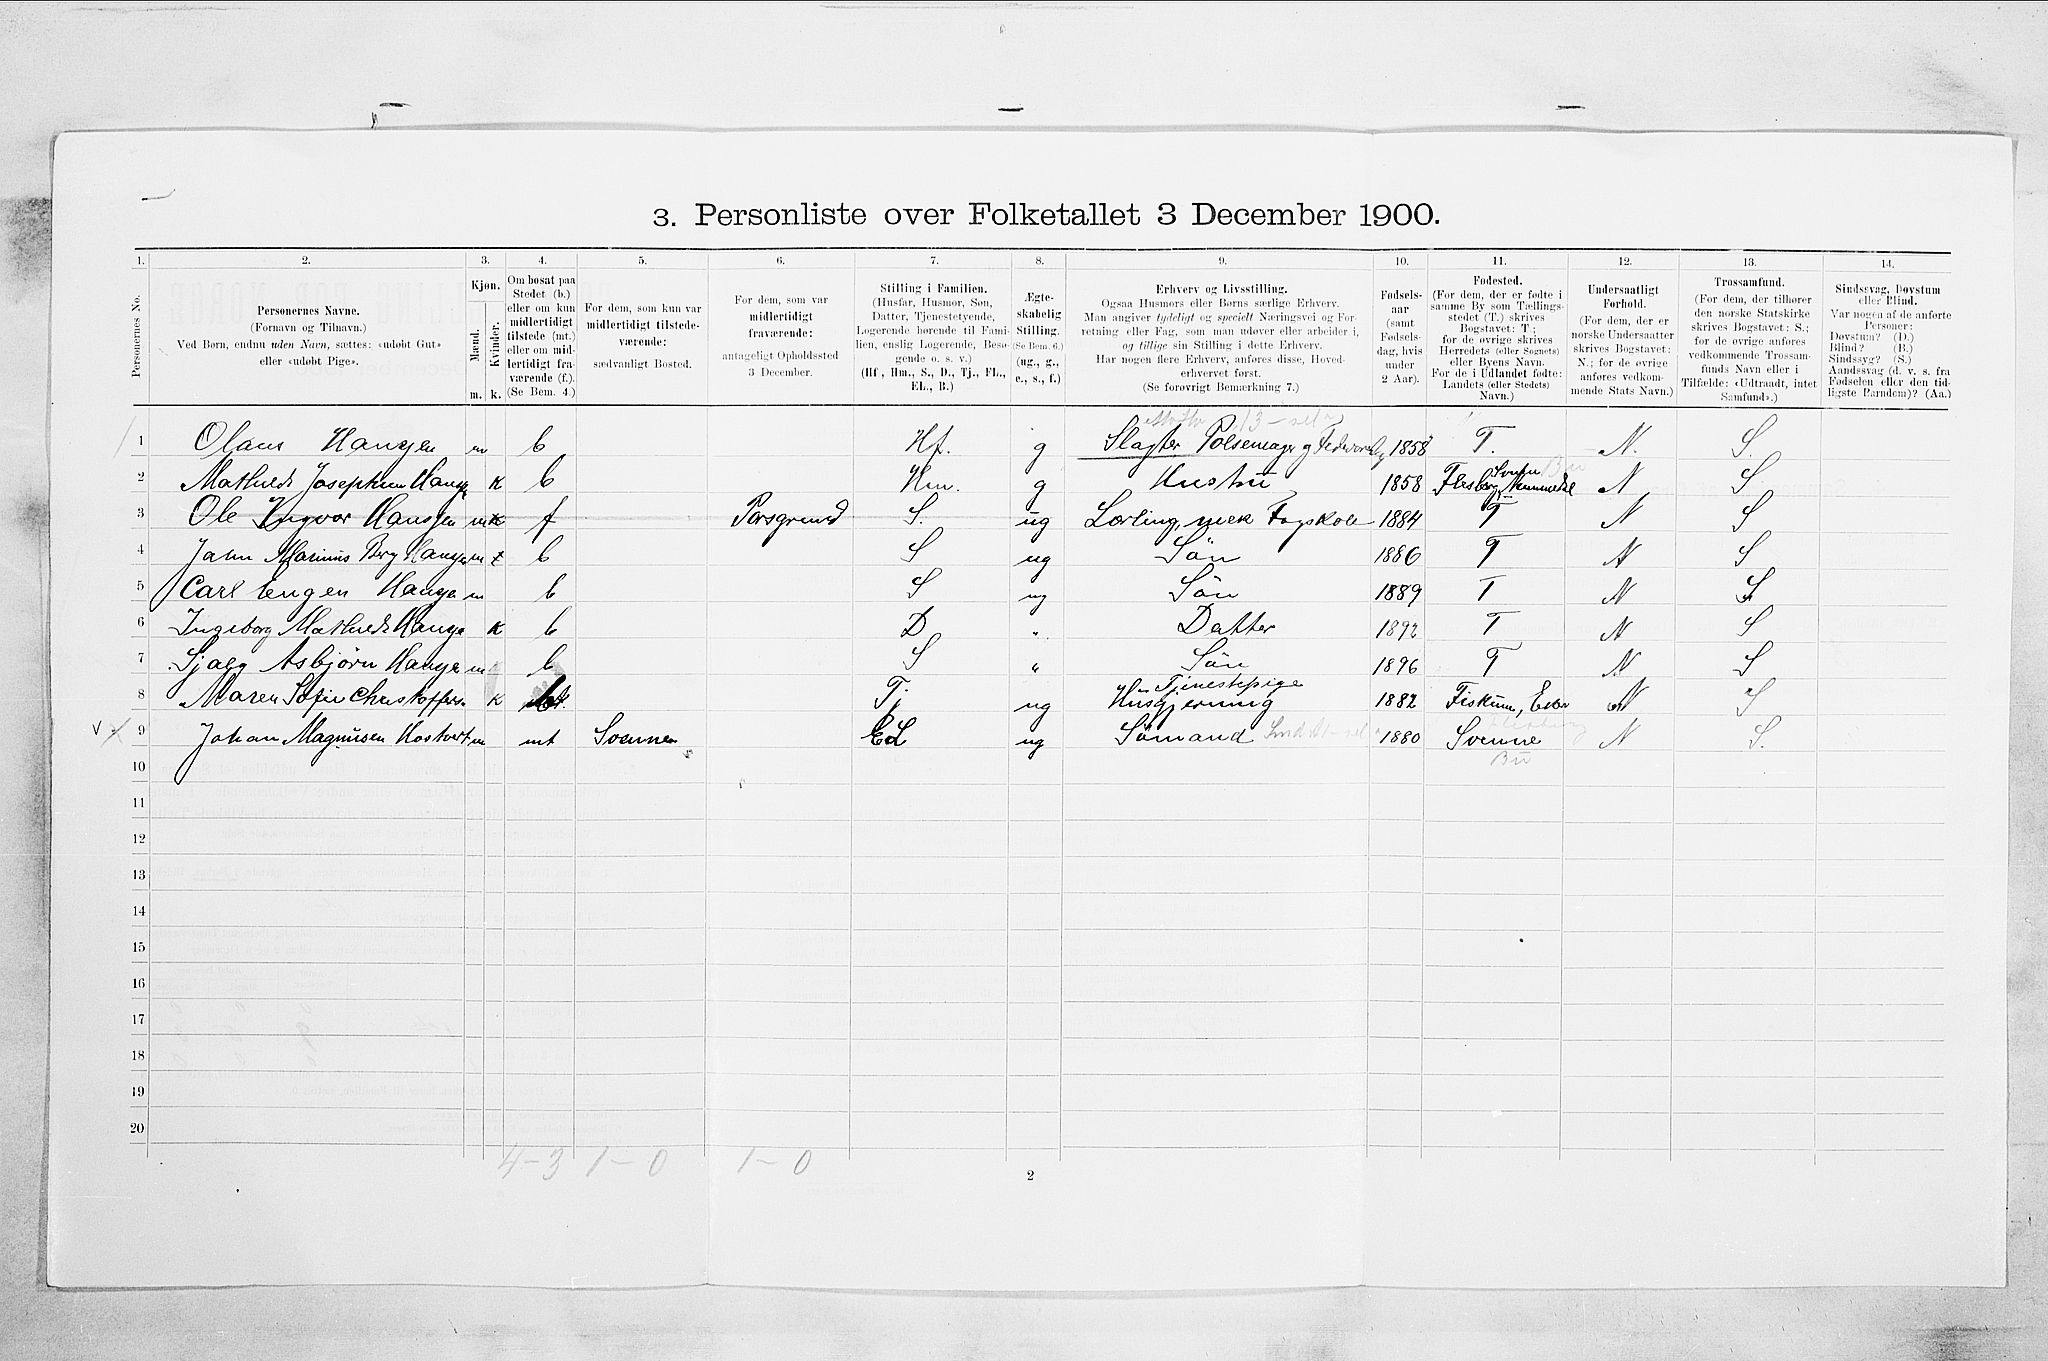 3. Personliste over Folketallet 3 December 1900.
1. 2. 3. 4. 5. 6. 7. 8. 9. 10. 11. 12. 13. 14.
Personernes No.
Personernes Navne.
(Fornavn og Tilnavn.)
Ved Børn, endnu uden Navn, sættes: «udøbt Gut»
eller «udøbt Pige».
Kjøn.
Mænd.
Kvinder.
m. k.
Om bosat paa
Stedet (b.)
eller om kun
midlertidigt
tilstede (mt.)
eller om mid-
lertidigt fra-
værende (f.).
(Se Bem. 4.)
For dem, som kun var
midlertidigt tilstede-
værende:
sædvanligt Bosted.
For dem, som var
midlertidigt
fraværende:
antageligt Opholdssted
3 December.
Stilling i Familien.
(Husfar, Husmor, Søn,
Datter, Tjenestetyende,
Logerende hørende til Fami-
lien, enslig Logerende, Besø-
gende o. s. v.)
(Hf., Hm., S., D., Tj., FL.,
EL., B.)
Ægte-
skabelig
Stilling.
(Se Bem. 6.)
(ug., g.,
e., s., f.)
Erhverv og Livsstilling.
Ogsaa Husmors eller Børns særlige Erhverv.
Man angiver tydeligt og specielt Næringsvei og For-
retning eller Fag, som man udøver eller arbeider i,
og tillige sin Stilling i dette Erhverv.
Har nogen flere Erhverv, anføres disse, Hoved-
erhvervet først.
(Se forøvrigt Bemærkning 7.)
Fødsels-
aar
(samt
Fødsels-
dag, hvis
under
2 Aar).
Fødested.
(For dem, der er fødte i
samme By som Tællings-
stedet (T.) skrives
Bogstavet: T.;
for de øvrige skrives
Herredets (eller Sognets)
eller Byens Navn.
For de i Udlandet fødte:
Landets (eller Stedets)
Navn.)
Undersaatligt
Forhold.
(For dem, der er
norske Undersaatter
skrives Bogstavet:
N.; for de øvrige
anføres vedkom-
mende Stats Navn.)
Trossamfund.
(For dem, der tilhører
den norske Statskirke
skrives Bogstavet: S.;
for de øvrige anføres
vedkommende Trossam-
funds Navn eller i
Tilfælde: «Udtraadt, intet
Samfund».)
Sindssvag, Døvstum
eller Blind.
Var nogen af de anførte
Personer:
Døvstum? (D.)
Blind? (B.)
Sindssyg? (S.)
Aandssvag (d. v. s. fra
Fødselen eller den tid-
ligste Barndom)? (Aa.)
1 Olaus Hansen m b Hf. g Slagter Pølsemager 1858 T. N. S.
2 Mathilde Josephine Hansen k b Hm. g Hustru 1858 Flesberg Nummedal N S
3 Ole Ingvar Hanssen m f Porsgrund S. ug Lærling, mek Fagskole 1884 T N S
4 Marinus Berg Hansen m b S ug Sön 1886 T N S
5 Carl Eugen Hansen m b S ug Sön 1889 T N S
6 Ingeborg Mathilde Hansen k b D " Datter 1892 T N S
7 Asbjörn Hansen m b S " Sön 1896 T N S
8 Maren Sofie Christoffers. k Tj. ug Tjenestepige
Husgjerning 1882 Fiskum, Eker N S
9 Johan Magnusen m mt Svenne EL ug Sömand 1880 Svenne N S.
Bu
10
11
12
13
14
15
16
17
18
19
20
4-3 1-0 1-0
2